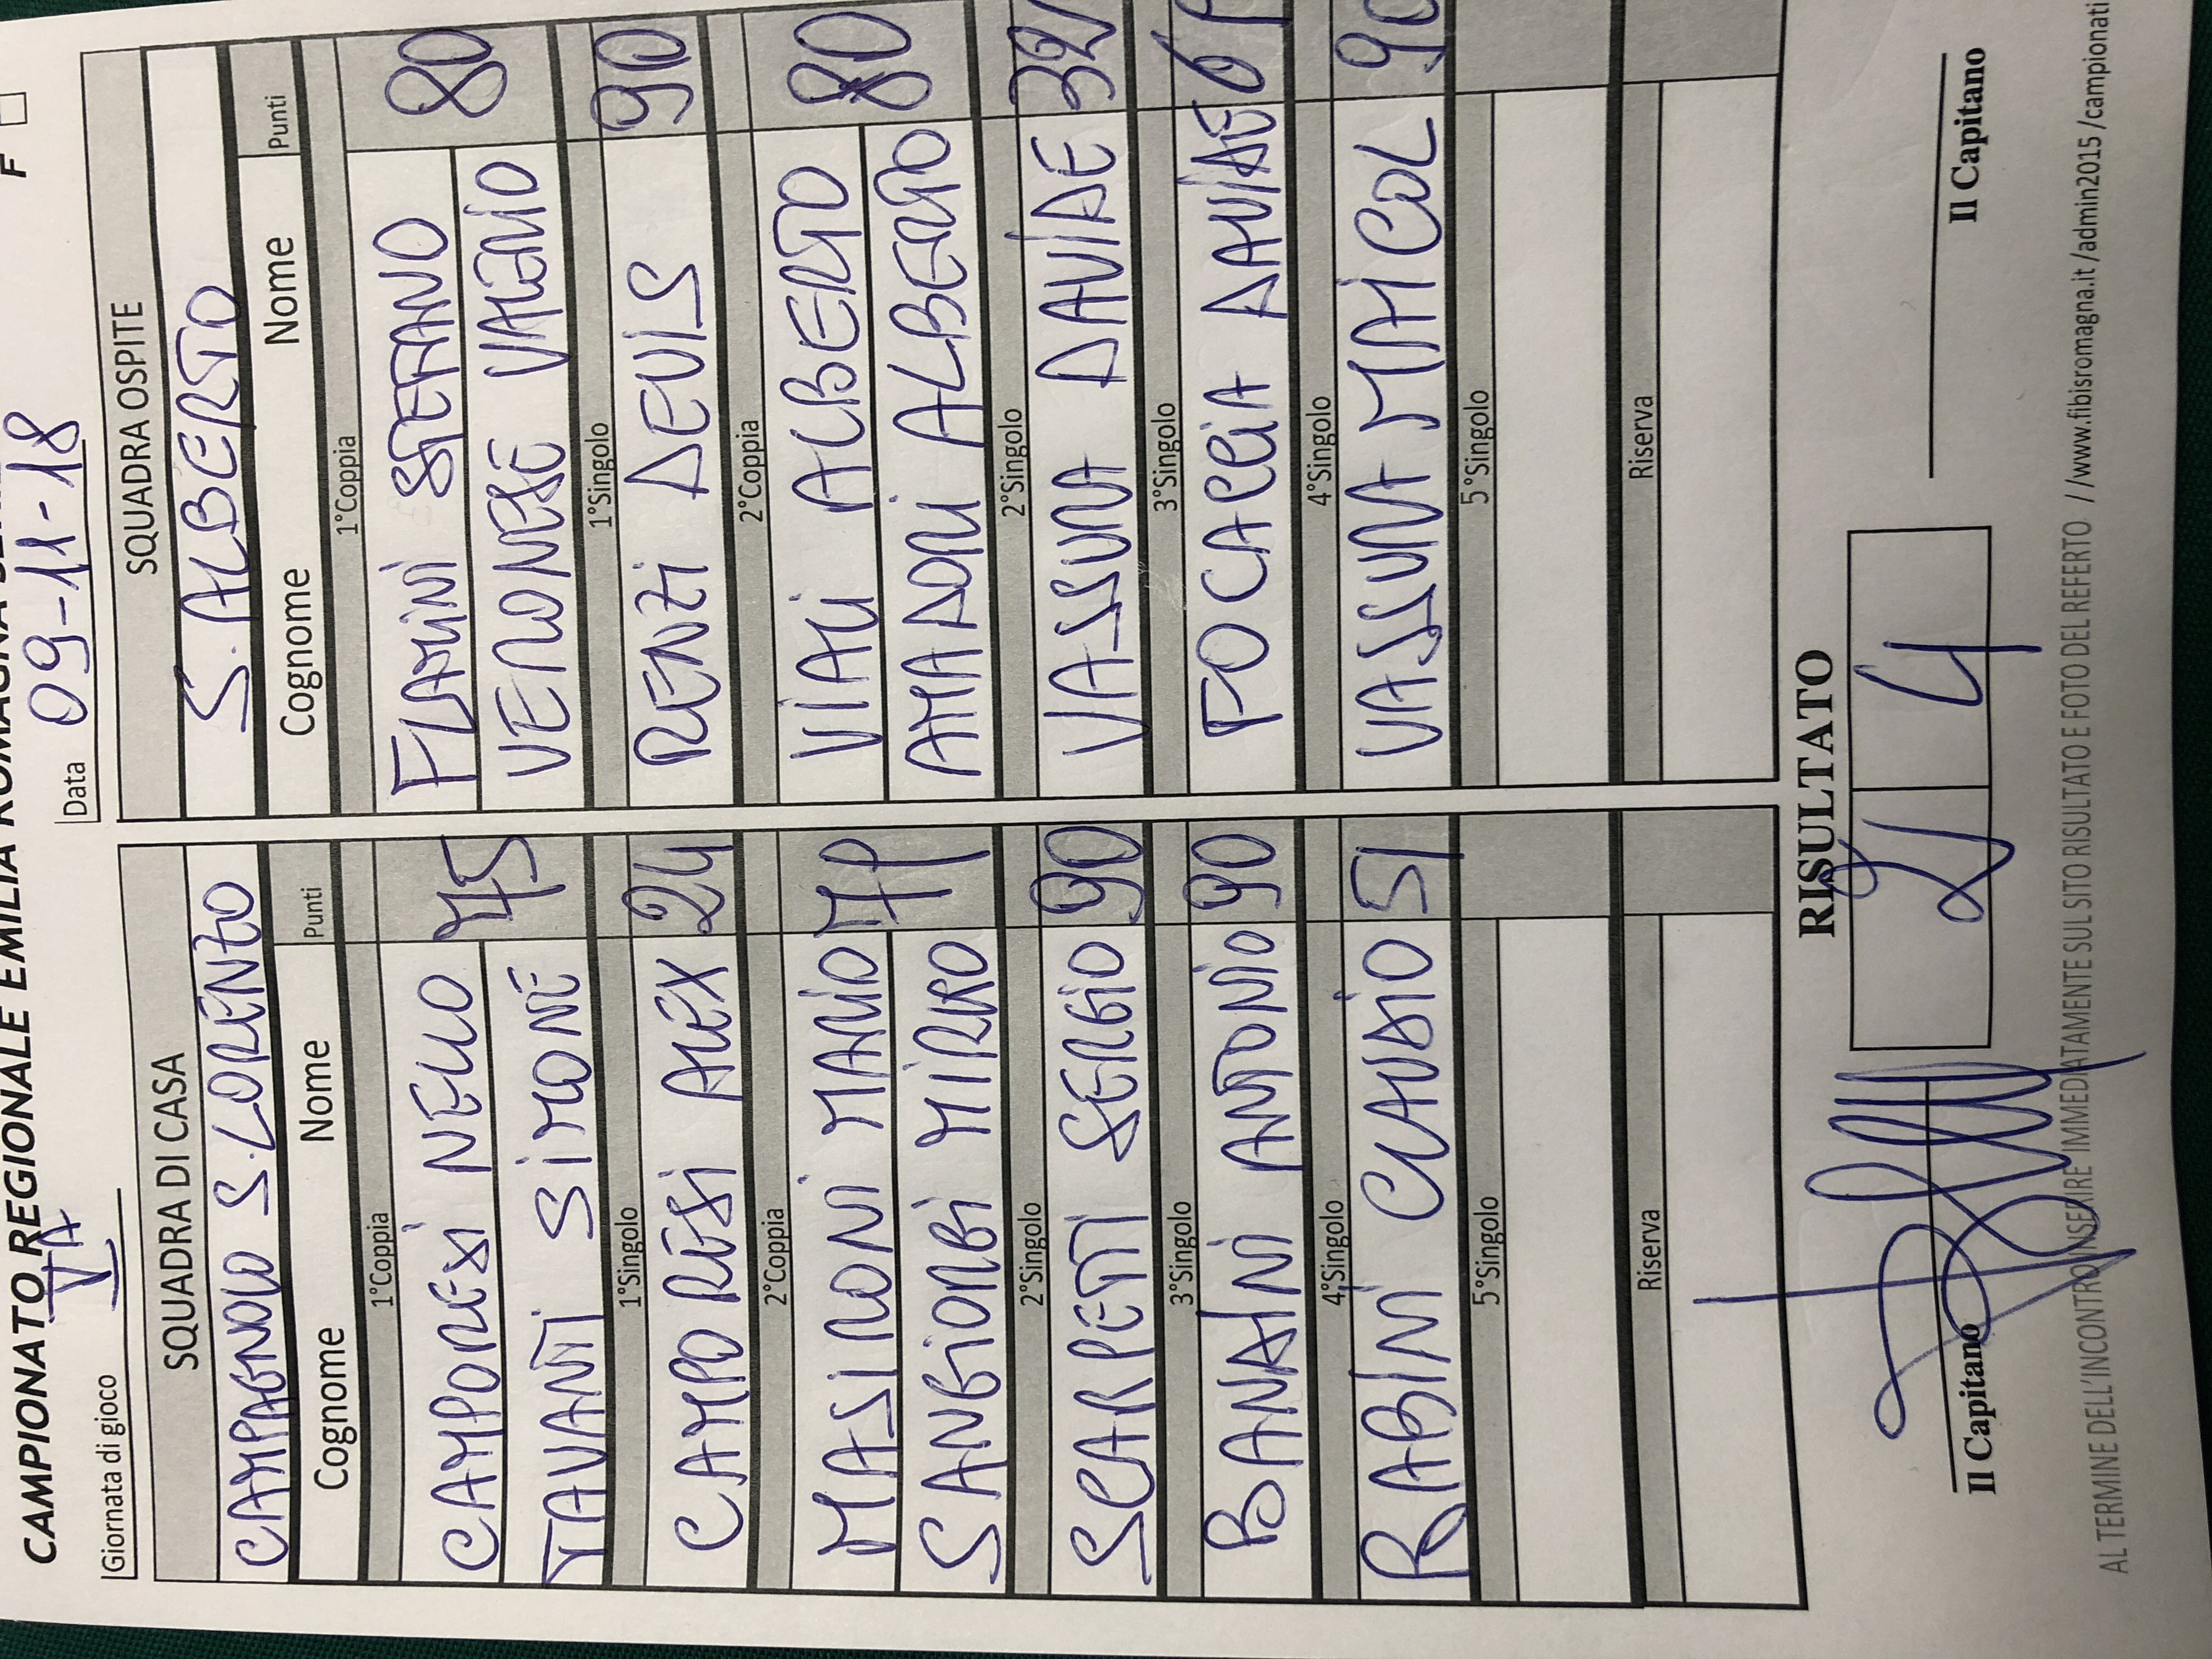 CAMPIONATO REGIONALE EMILIA ROMAGNA
F
Giornata di gioco VA
Data 09-11-18
SQUADRA DI CASA
CAMPAGNOLO S.LORENZO
Cognome Nome Punti
1°Coppia
CAMPORESI NELLO 75
TAVANTI SIMONE
1°Singolo
CAMPORESI ALEX 24
2°Coppia
MASIRONI MARIO
SANGIORGI MIRKO
2°Singolo
SCARPETTI SERGIO 90
3°Singolo
BANDINI ANTONIO 90
4°Singolo
RABINI CLAUDIO 51
5°Singolo
Riserva
SQUADRA OSPITE
S. ALBERTO
Cognome Nome Punti
1°Coppia
FLAMINI STEFANO 80
VERONESE VALERIO
1°Singolo
RENZI DEVIS 90
2°Coppia
VIALI ALBERTO 80
AMADORI ALBERTO
2°Singolo
VASSURA DAVIDE 32
3°Singolo
FOCACCIA DAVIDE
4°Singolo
VASSURA MAICOL 90
5°Singolo
Riserva
RISULTATO
2 4
Il Capitano
Il Capitano
AL TERMINE DELL'INCONTRO INSERIRE IMMEDIATAMENTE SUL SITO RISULTATO E FOTO DEL REFERTO //www.fibisromagna.it /admin2015 /campionati